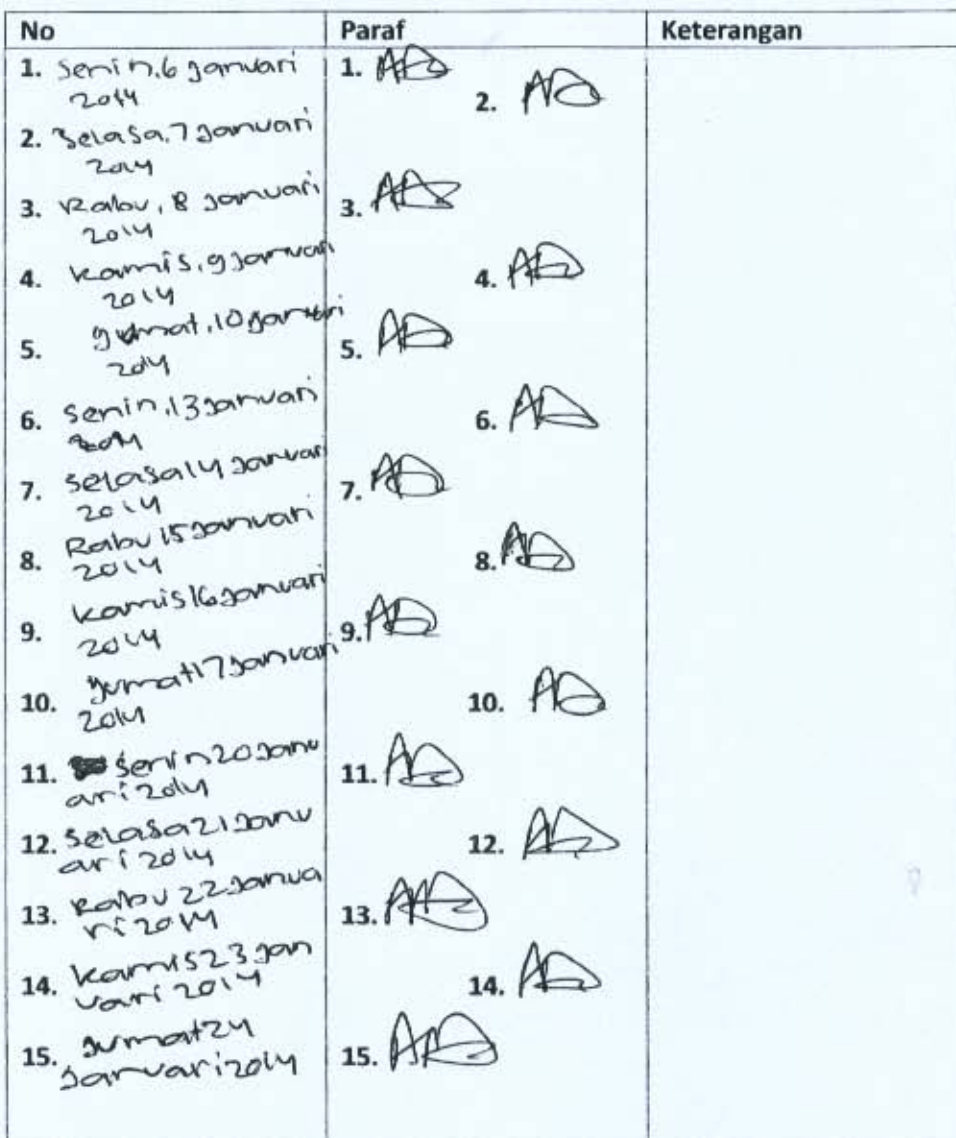 No Paraf Keterangan
1. Senin, 6 Januari 1.
2014 2.
2. Selasa, 7 Januari
2014
3. Rabu, 8 Januari 3.
2014
4. Kamis, 9 Januari 4.
2014
5. Jumat, 10 Januari 5.
2014
6. Senin, 13 Januari 6.
2014
7. Selasa 14 Januari 7.
2014
8. Rabu 15 Januari 8.
2014
9. Kamis 16 Januari 9.
2014
10. Jumat 17 Januari 10.
2014
11. Senin 20 Janu 11.
ari 2014
12. Selasa 21 Janu 12.
ari 2014
13. Rabu 22 Janua 13.
ri 2014
14. Kamis 23 Jan 14.
uari 2014
15. Jumat 24 15.
Januari 2014